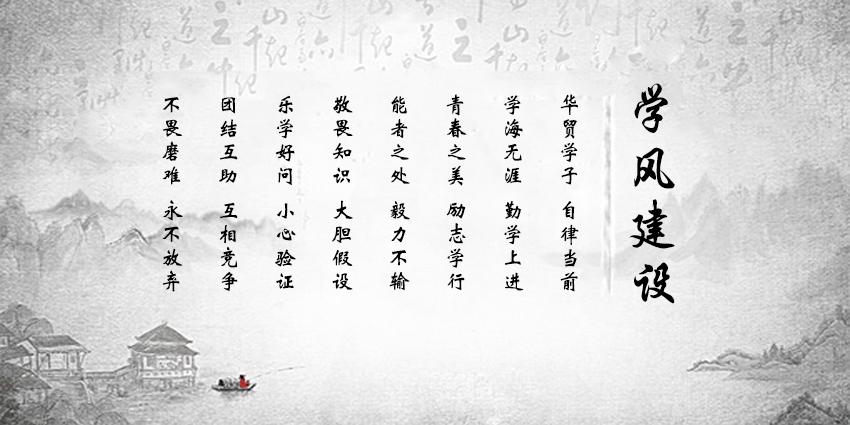 学风建设
华贸学子 自律当前
学海无涯 勤学上进
青春之美 励志学行
能者之处 毅力不输
敬畏知识 大胆假设
乐学好问 小心验证
团结互助 互相竞争
不畏磨难 永不放弃